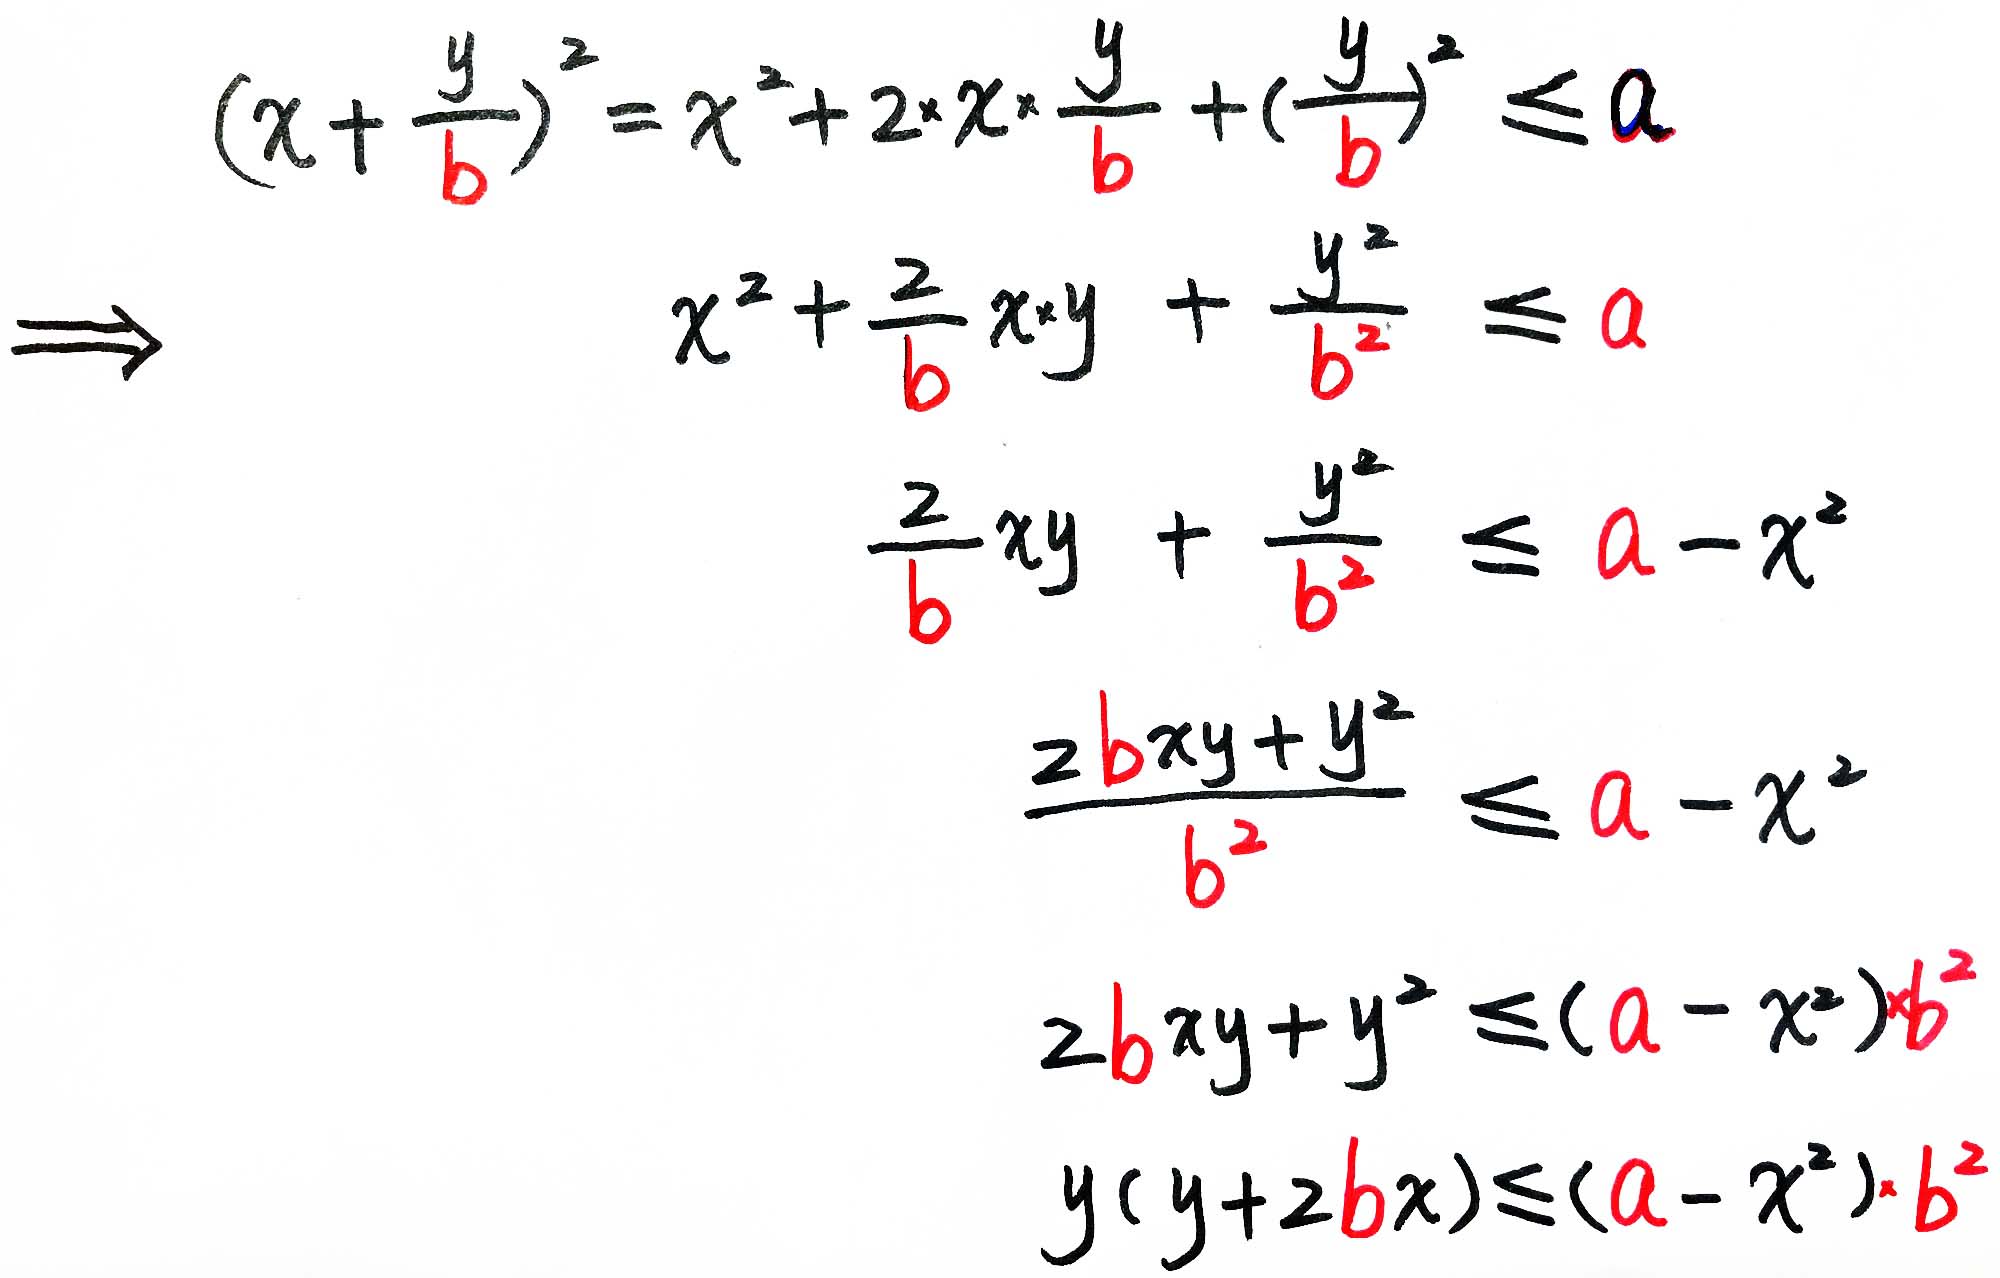 (x + y/b)² = x² + 2 × x × y/b + (y/b)² ≤ a
⇒ x² + 2/b x × y + y²/b² ≤ a
2/b xy + y²/b² ≤ a − x²
(2bxy + y²)/b² ≤ a − x²
2bxy + y² ≤ (a − x²) × b²
y(y + 2bx) ≤ (a − x²) × b²